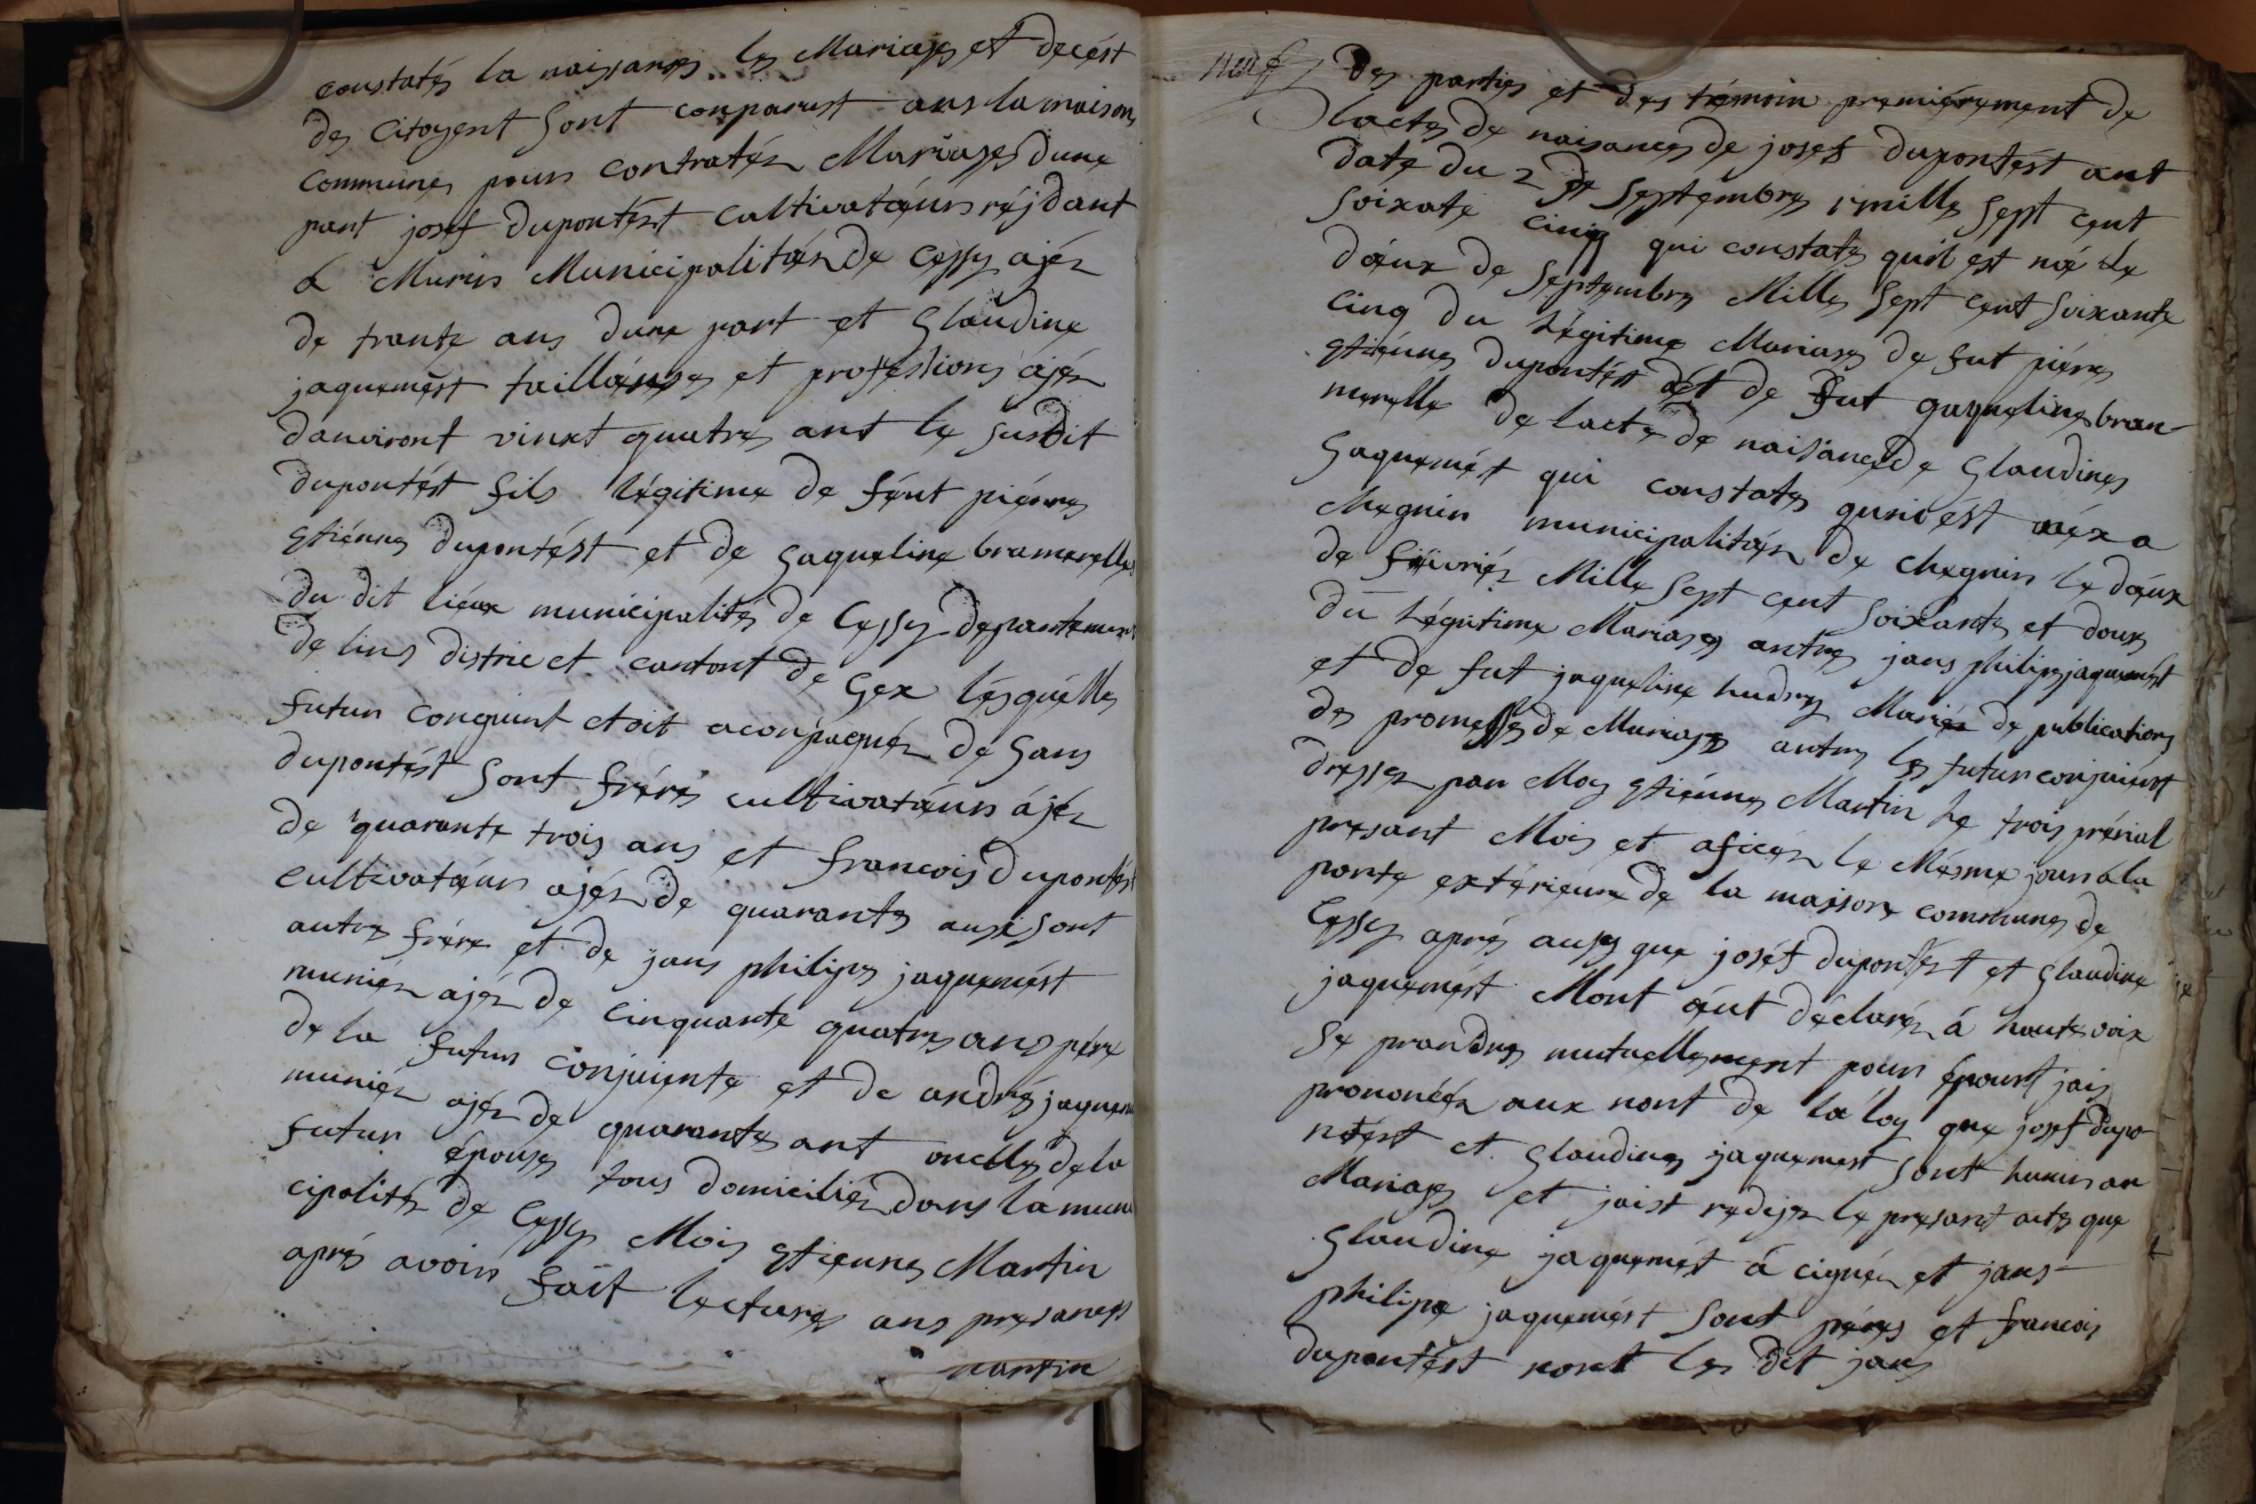 constatés la naisances les Mariages et decést
des Citoyent Sont conparust ans la maison
Communes pour contratér Mariages dune
part josef dupontést cultivatœurs réjdant
a Murin Municipalitér de Cessy ajér
de trante ans dune part et glaudine
jaquemést tailleuses et professions ajér
danviront vinxt quatres ant le susdit
dupontést fils légitime de féut piérres
etiénnes dupontést et de gaqueline bramerelles
du dit lieux municipalités de Cessy departemen
de lins district cantont de Gex lésquélles
futur conguint etoit aconpagnér de gans
dupontést Sont fréres cultivatœurs ájér
de quarante trois ans et francois dupontést
cultivatœurs ajér de quarantes ausi sont
autre frére et de jans philipes jaquemést
muniér ajér de cinquante quatres ans pére
de la futur conjuinte et de andrés jaquem
muniér ajér de quarantes ant onclles de la
futur épouses tous domiciliér dans la muni
cipalités de Cessy Mois etiennes Martin
aprés avoir fait lectures ans presances
martin
neuf
des parties et des témoin premiérement de
lactes de naisances de josef dupontést ant
date du 2 de septembres mille sept cent
soixate cinq qui constates quil est né le
dœux de septembres Milles sept cent soixante
cinq du légitime Mariages de fut piéres
etiénnes dupontést et de fut gaquelines bram
merelle de lacte de naisances de glaudines
gaquemést qui constates ést néé a
chegnin municipalitér de chegnin le dœux
de févriér Mille sept cent soixantes et doux
du légitime Mariages antres jans philipes jaquemést
et de fut jaqueline hudry Mariér de publications
des promesses de Mariages antres les futur conjuinst
dresser par Moy etiénnes Martin le trois prérial
presant Mois et aficér le Mésme jour á la
porte extérieure de la maison communes de
Cessy aprés ausy que josef dupontést et glaudine
jaquemést Mont œut déclarér á hautes voix
se prandres mutuellement pour époust jais
prononcér aux nont de la loy que josef dupo-
ntést et glaudines jaquemest sont hunis an
Mariages et jaist redijer le presant actes que
glaudine jaquemést á cignér et jans-
philipe jaquemést sont péres et francois
dupontést nont les dit jans